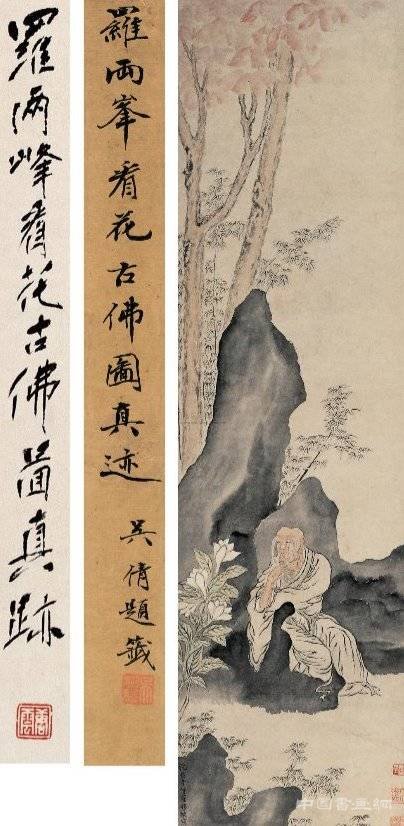 羅兩峰看花古佛圖真跡
羅兩峯看花古佛圖真迹
吳倩題籤
中国书画網